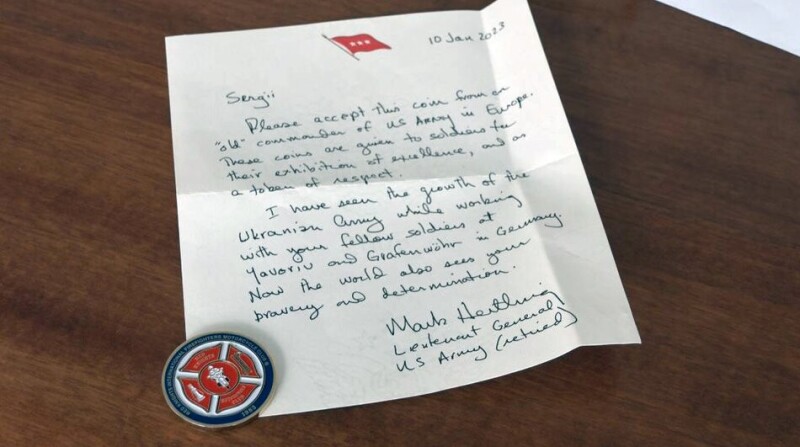 10 Jan 2023
Sergii
Please accept this coin from an
"old" commander of US Army in Europe.
These coins are given to soldiers for
their exhibition of excellence, and as
a token of respect.
I have seen the growth of the
Ukranian Army while working
with your fellow soldiers at
Yavoriv and Grafenwöhr in Germany.
Now the world also sees your
bravery and determination.
Mark Hertling
Lieutenant General
US Army (retired)
RED KNIGHTS INTERNATIONAL FIREFIGHTERS MOTORCYCLE CLUB
RED KNIGHTS